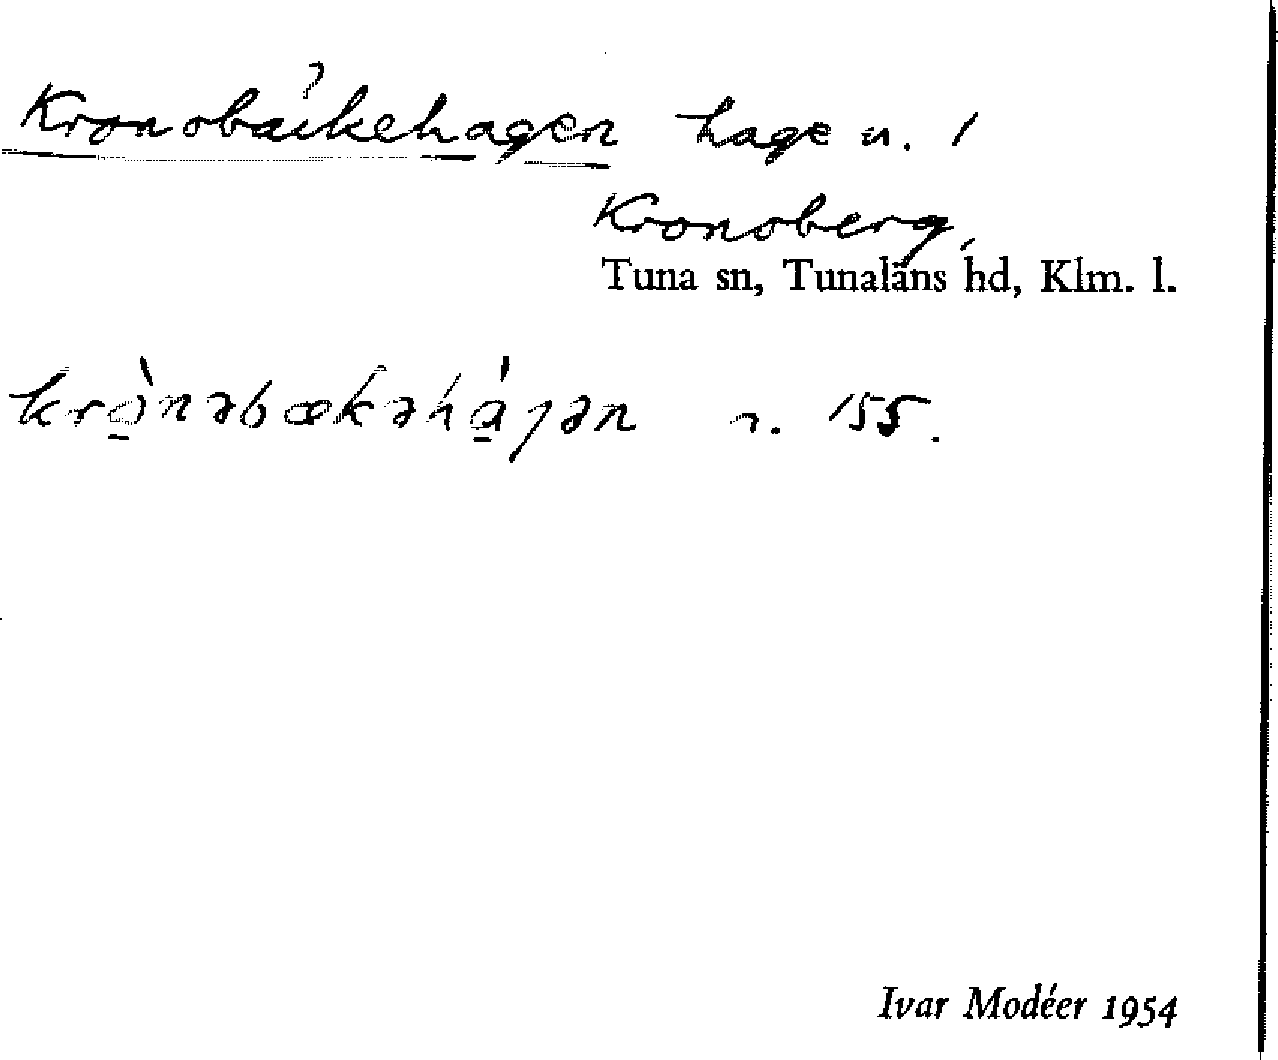 Kronobäckehagen hage u. 1
Kronoberg,
Tuna sn, Tunaläns hd, Klm. l.
krò̱nəbækəhá̱ɡən n. 155.
Ivar Modéer 1954